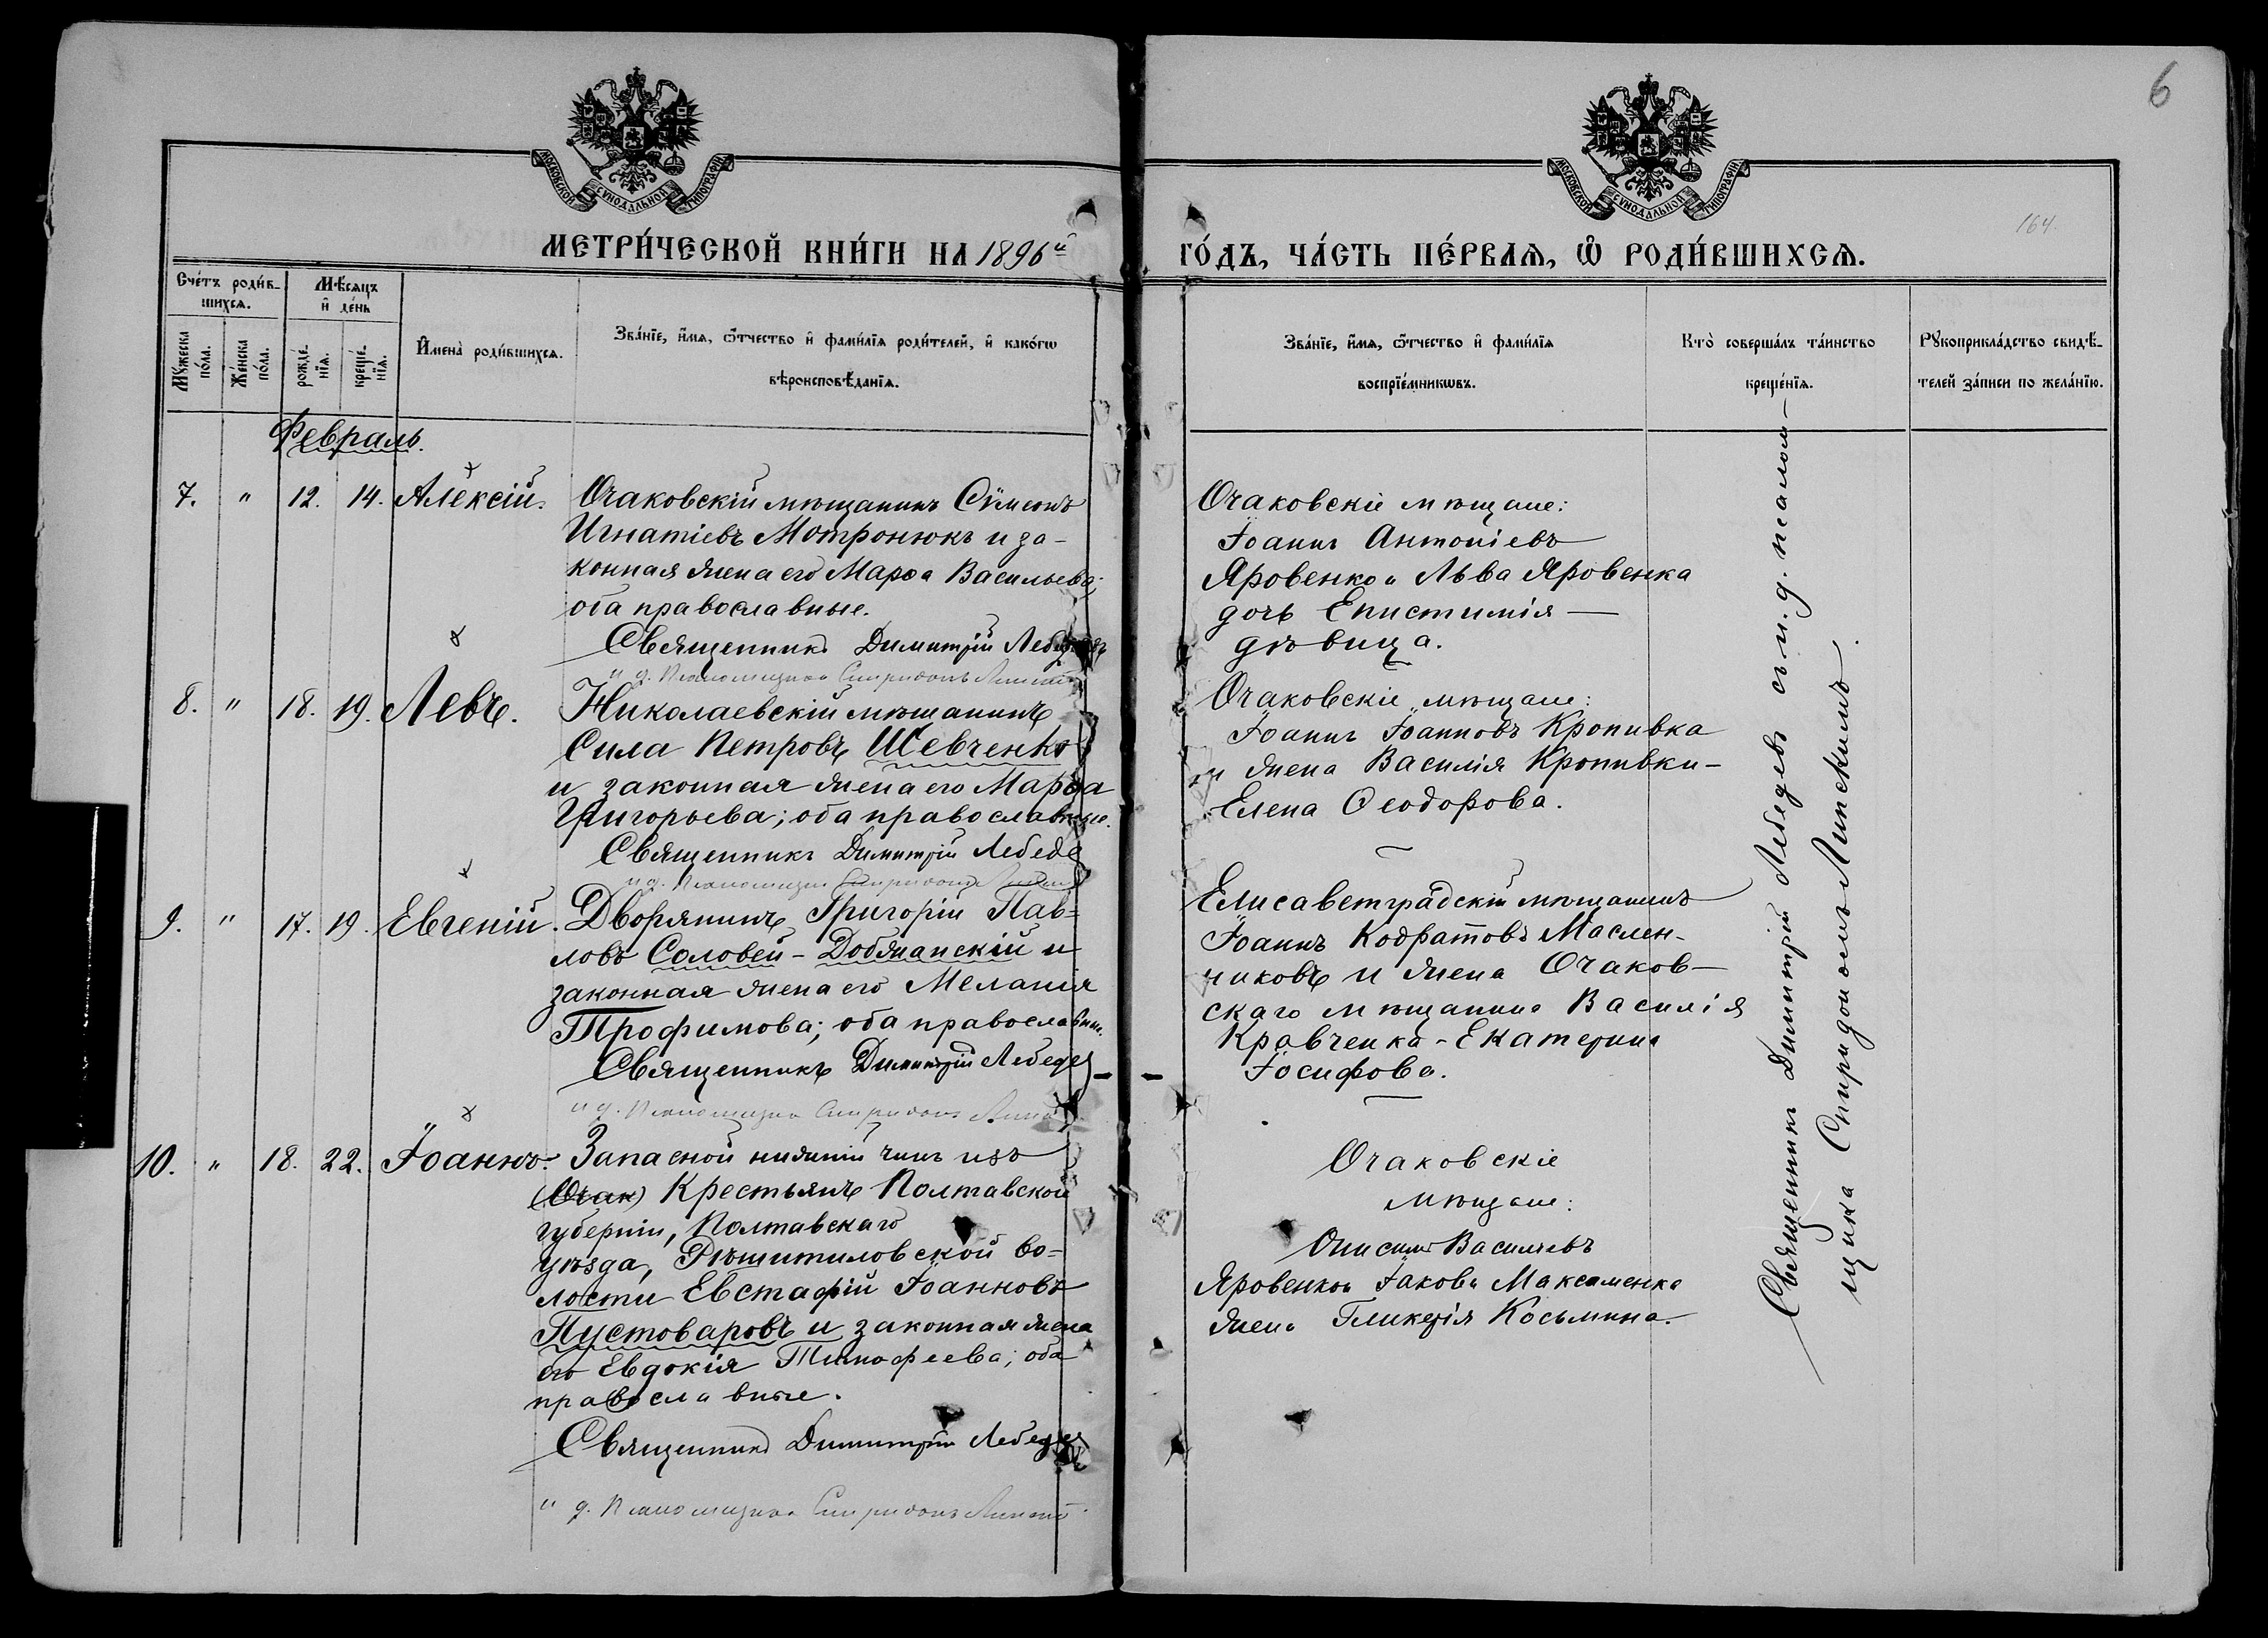 6
164.
МОСКОВСКОЙ СѴНОДАЛЬНОЙ ТИПОГРАФІИ
МОСКОВСКОЙ СѴНОДАЛЬНОЙ ТИПОГРАФІИ
МЕТРИ́ЧЕСКОЙ КНИ́ГИ НА 1896й
ГО́ДЪ, ЧА́СТЬ ПЕ́РВАѦ, Ѽ РОДИ́ВШИХСѦ.
Сче́тъ роди́в-
шихсѧ.
Мѣ́сѧцъ
и҆ де́нь
Мꙋ́жеска по́ла.
Же́нска по́ла.
рожде́-
нїѧ.
креще́-
нїѧ.
И҆мена̀ роди́вшихсѧ.
Зва́нїе, и҆́мѧ, ѻ҆́тчество и҆ фами́лїѧ роди́телей, и҆ како́гѡ
вѣроисповѣ́данїѧ.
Зва́нїе, и҆́мѧ, ѻ҆́тчество и҆ фами́лїѧ
воспрїе́мникѡвъ.
Кто̀ соверша́лъ та́инство
креще́нїѧ.
Рꙋкоприкла́дство свидѣ́-
телей за́писи по жела́нїю.
Февраль.
7. " 12. 14. Алексій. Очаковскій мѣщанинъ Сѵмеонъ
Игнатіевъ Мотронюкъ и за-
конная жена его Марѳа Васильева;
оба православные.
Священникъ Димитрій Лебедевъ
и д. псаломщика Спиридонъ
Очаковскіе мѣщане:
Іоаннъ Антоніевъ
Яровенко и Льва Яровенка
дочь Епистимія —
дѣвица.
8. " 18. 19. Левъ. Николаевскій мѣщанинъ
Сила Петровъ Шевченко
и законная жена его Марѳа
Григорьева; оба православные.
Священникъ Димитрій Лебеде
и д. псаломщика Спиридонъ
Очаковскіе мѣщане:
Іоаннъ Іоанновъ Кропивка
и жена Василія Кропивки -
Елена Ѳеодорова.
9. " 17. 19. Евгеній. Дворянинъ Григорій Пав-
ловъ Соловей - Добжанскій и
законная жена его Меланія
Трофимова; оба православн.
Священникъ Димитрій Лебедев
и д. псаломщика Спиридонъ
Елисаветградскій мѣщанинъ
Іоаннъ Кодратовъ Маслен-
чиковъ и жена Очаков-
скаго мѣщанина Василія
Кравченка - Екатерина
Іосифова.
10. " 18. 22. Іоаннъ. Запасной нижній чинъ изъ
(Очак) Крестьянъ Полтавской
губерніи, Полтавскаго
уѣзда, Рѣшитиловской во-
лости Евстафій Іоанновъ
Пустоваровъ и законная жена
его Евдокія Тимофеева; оба
православные.
Священникъ Димитрій Лебедев
и д. псаломщика Спиридонъ
Очаковскіе
мѣщане:
Онисимъ Васильевъ
Яровенко и Іакова Максименка
жена Гликерія Косьмина.
Священникъ Димитрій Лебедевъ съ и. д. псалом-
щика Спиридономъ Липскимъ.